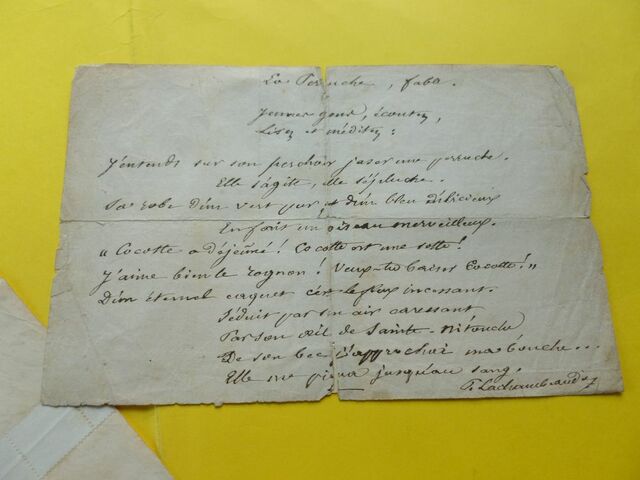 La Perruche, fable.
Jeunes gens, écoutez,
Lisez et méditez:
J'entends sur son perchoir jaser une perruche.
Elle s'agite, elle s'épluche.
Sa robe d'un vert pur et d'un bleu délicieux
En fait un oiseau merveilleux.
"Cocotte a déjeûné! Cocotte est une sotte!
J'aime bien le rognon! Veux-tu baiser Cocotte!"
D'un éternel caquet c'est le flux incessant.
Séduit par son air caressant,
Par son œil de Sainte-Nitouche
De son bec j'approchai ma bouche...
Elle me piqua jusqu'au sang.
P. Lachambeaudie